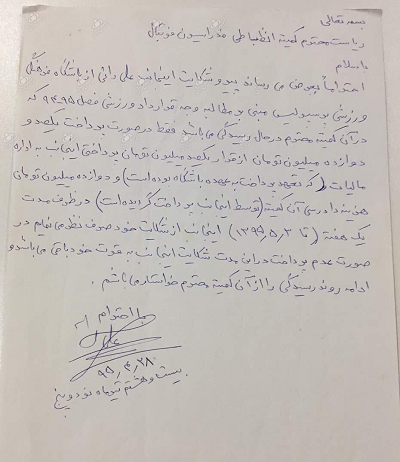 بسمه تعالی
ریاست محترم کمیته انضباطی فدراسیون فوتبال
با سلام
احتراماً بعرض می رساند پیرو شکایت اینجانب علی دائی از باشگاه فرهنگی
ورزشی پرسپولیس مبنی بر مطالبه وجه قرارداد ورزشی فصل ۹۴-۹۵ که
در آن کمیته محترم در حال رسیدگی می باشد فقط در صورت پرداخت یکصد و
دوازده میلیون تومان از قرار یکصد میلیون تومان پرداختی اینجانب به اداره
مالیات (که تعهد پرداخت به عهده باشگاه بوده است) و دوازده میلیون تومان
هزینه دادرسی آن کمیته (توسط اینجانب پرداخت گردیده است) در ظرف مدت
یک هفته (تا ۱۳۹۵,۵,۳) اینجانب از شکایت خود صرف نظر می نمایم در
صورت عدم پرداخت در این مدت شکایت اینجانب به قوت خود باقی می باشد و
ادامه روند رسیدگی را از آن کمیته محترم خواستار می باشم.
با احترام
۹۵,۴,۲۸
بیست و هشتم تیرماه نود و پنج